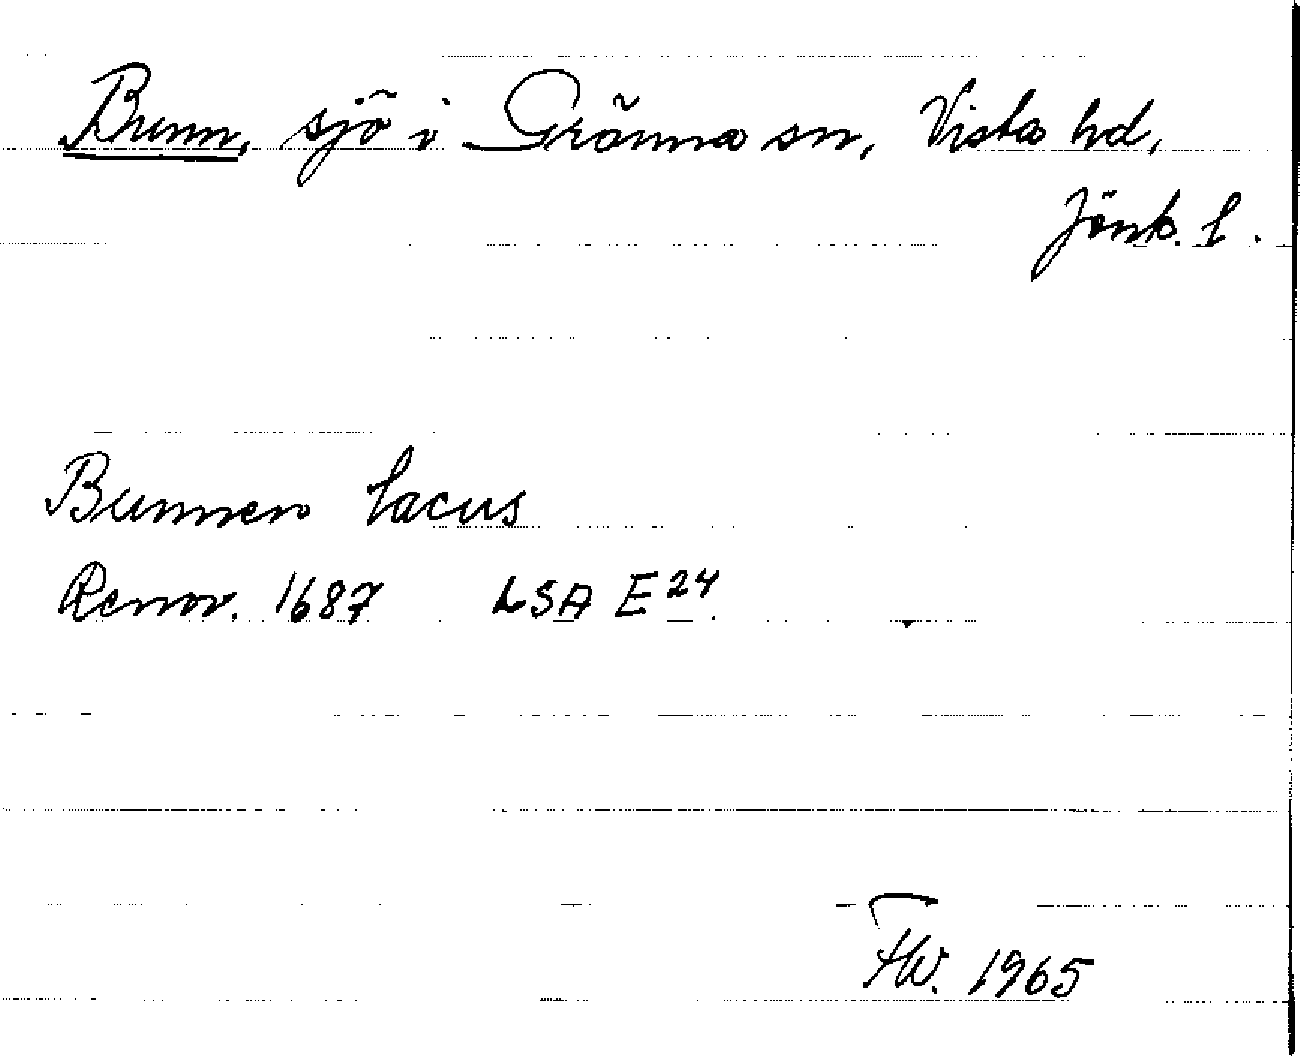 Bunn, sjö i Gränna sn, Vista hd,
Jönk. l.
Bunnen lacus
Renov. 1687 LSA E 24
HW. 1965